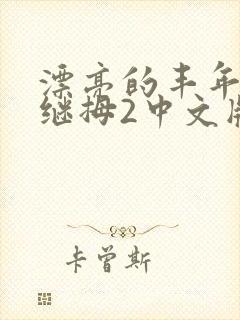 漂亮的丰年
继拇2中文版
卡曾斯